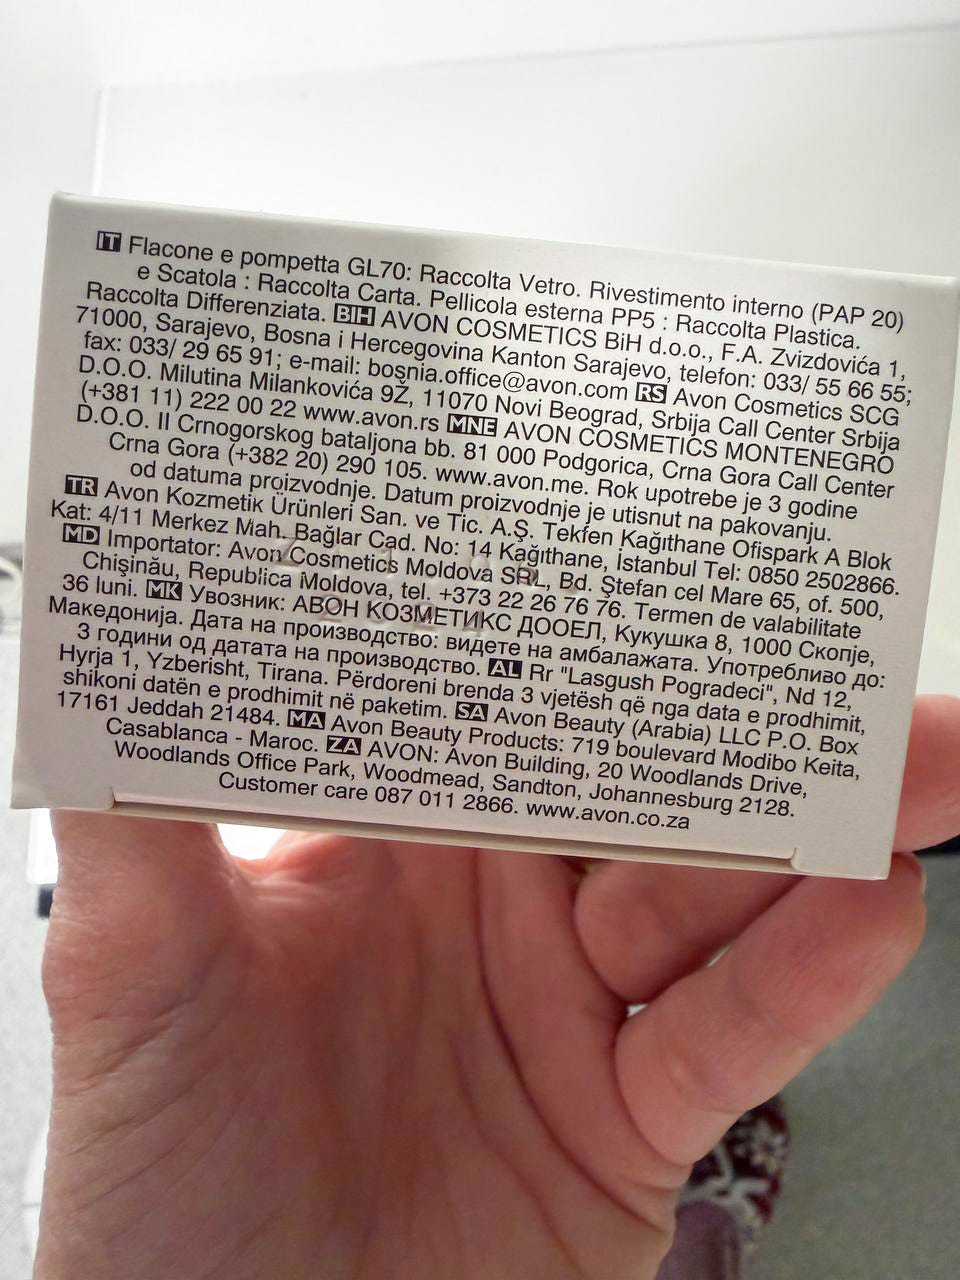 IT Flacone e pompetta GL70: Raccolta Vetro. Rivestimento interno (PAP 20)
e Scatola : Raccolta Carta. Pellicola esterna PP5 : Raccolta Plastica.
Raccolta Differenziata. BIH AVON COSMETICS BiH d.o.o., F.A. Zvizdovića 1,
71000, Sarajevo, Bosna i Hercegovina Kanton Sarajevo, telefon: 033/ 55 66 55;
fax: 033/ 29 65 91; e-mail: bosnia.office@avon.com RS Avon Cosmetics SCG
D.O.O. Milutina Milankovića 9Ž, 11070 Novi Beograd, Srbija Call Center Srbija
(+381 11) 222 00 22 www.avon.rs MNE AVON COSMETICS MONTENEGRO
D.O.O. II Crnogorskog bataljona bb. 81 000 Podgorica, Crna Gora Call Center
Crna Gora (+382 20) 290 105. www.avon.me. Rok upotrebe je 3 godine
od datuma proizvodnje. Datum proizvodnje je utisnut na pakovanju.
TR Avon Kozmetik Ürünleri San. ve Tic. A.Ş. Tekfen Kağıthane Ofispark A Blok
Kat: 4/11 Merkez Mah. Bağlar Cad. No: 14 Kağıthane, İstanbul Tel: 0850 2502866.
MD Importator: Avon Cosmetics Moldova SRL, Bd. Ştefan cel Mare 65, of. 500,
Chişinău, Republica Moldova, tel. +373 22 26 76 76. Termen de valabilitate
36 luni. MK Увозник: АВОН КОЗМЕТИКС ДООЕЛ, Кукушка 8, 1000 Скопје,
Македонија. Дата на производство: видете на амбалажата. Употребливо до:
3 години од датата на производство. AL Rr "Lasgush Pogradeci", Nd 12,
Hyrja 1, Yzberisht, Tirana. Përdoreni brenda 3 vjetësh që nga data e prodhimit,
shikoni datën e prodhimit në paketim. SA Avon Beauty (Arabia) LLC P.O. Box
17161 Jeddah 21484. MA Avon Beauty Products: 719 boulevard Modibo Keita,
Casablanca - Maroc. ZA AVON: Avon Building, 20 Woodlands Drive,
Woodlands Office Park, Woodmead, Sandton, Johannesburg 2128.
Customer care 087 011 2866. www.avon.co.za